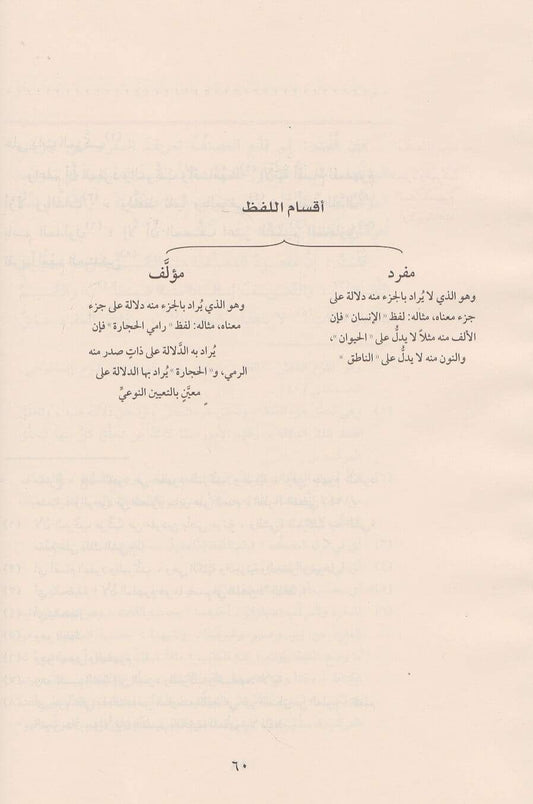 أقسام اللفظ
مفرد
وهو الذي لا يُراد بالجزء منه دلالة على
جزء معناه، مثاله: لفظ «الإنسان» فإن
الألف منه مثلاً لا يدلُّ على «الحيوان»،
والنون منه لا يدلُّ على «الناطق»
مؤلَّف
وهو الذي يُراد بالجزء منه دلالة على جزء
معناه، مثاله: لفظ «رامي الحجارة» فإن
يُراد به الدَّلالة على ذاتٍ صدر منه
الرمي، و«الحجارة» يُراد بها الدلالة على
معيَّنٍ بالتعيين النوعيِّ
٦٠